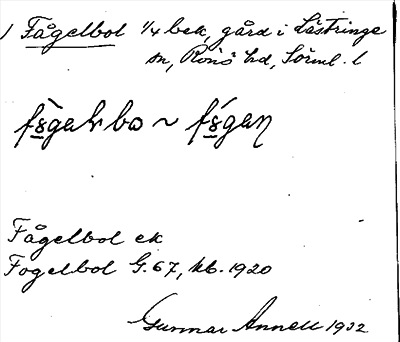 1 Fågelbol 1/4 bek, gård i Lästringe
sn, Rönö hd, Sörml. l
Fågelbol ek
Fogelbol G. 67, kb. 1920
Gunnar Annell 1932